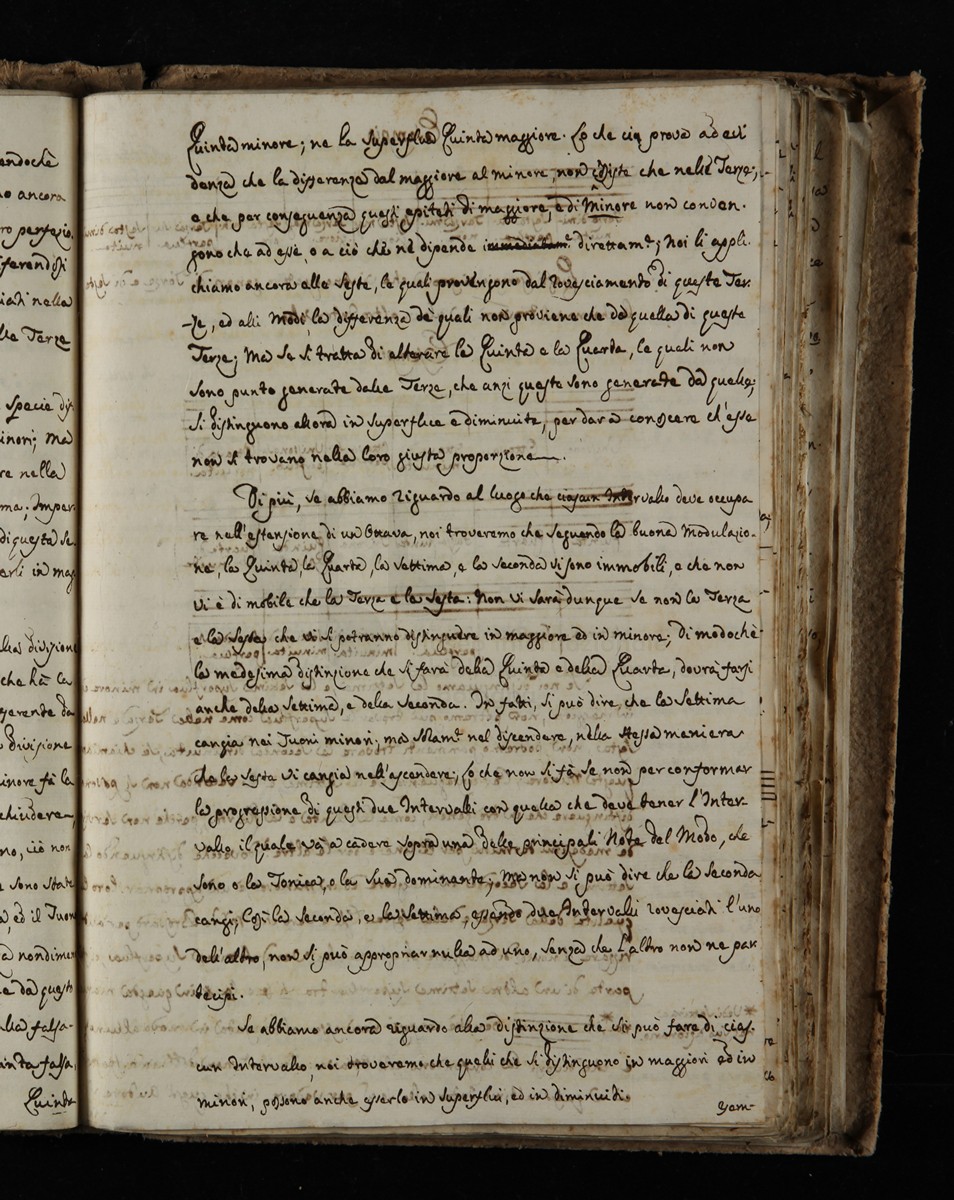 endochè
no ancora
ro perfezio.
iferendosi
iati nella
lle Terze
specie di
inori; Ma
re nella
ma; Imper
di questa se
erli in mag
lla division
che hà la
gerente da
divisione
inore fà la
chiudere,
no, ciò non
sono state
ed il Tuon
nondime
e da questo
lla falsa.
inta falsa,
Quinta
Quinta minore; ne la superflua Quinta maggiore. Lo che ciò prova ad evi
denza che la differenza dal maggiore al minore, non consiste che nelle Terze;
e che per conseguenza questi epiteti di maggiore, e di Minore non conven.
gono che ad esse, o a ciò che ne dipende immediatam.e direttam.e; Noi li appli.
chiamo ancora alle Seste, le quali provengono dal rovesciamento di queste Ter
ze, ed alli Modi la differenza de quali non proviene che da quella di queste
Terze; Ma se si tratta di alterare la Quinta e la Quarta, le quali non
sono punto generate dalle Terze, che anzi queste sono generate da quelle;
si distinguono allora in superflue e diminuite, per dar a conoscere ch'esse
non si trovano nella loro giusta proporzione.
Di più, se abbiamo riguardo al luogo che ciascun Intervallo deve occupa
re nell'estensione di un Ottava, noi troveremo che seguendo la buona Modulazio.
ne, la Quinta, la Quarta, la Settima, e la Seconda vi sono immobili, e che non
vi è di mobile che la Terza e la Sesta: Non vi sarà dunque se non la Terza
e la Sesta che vi si potranno distinguere in maggiore ed in minore; Di modochè
la medesima distinzione che si farà della Quinta e della Quarta, dovrà farsi
anche della Settima, e della Seconda. In fatti, si può dire, che la Settima
cangia nei Tuoni minori; ma solam.e nel discendere, nella stessa maniera
che la Sesta vi cangia nell'ascendere; Lo che non si fà, se non per conformar
la progressione di questi due Intervalli con quella che deve tener l'Inter-
vallo, il quale và a cadere sopra una delle principali Note del Modo, che
sono o la Tonica, o la sua dominante; Ma non si può dire che la Seconda
cangi; Così la Seconda, e la Settima, essendo due Intervalli rovesciati l'uno
dell'altro, non si può appropriar nulla ad uno, senza che l'altro non ne par
tecipi.
Se abbiamo ancora riguardo alla distinzione che si può fare di cias.
cun Intervallo, noi troveremo che quelli che si distinguono in maggiori ed in
minori, possono anche esserlo in superflui, ed in diminuiti.